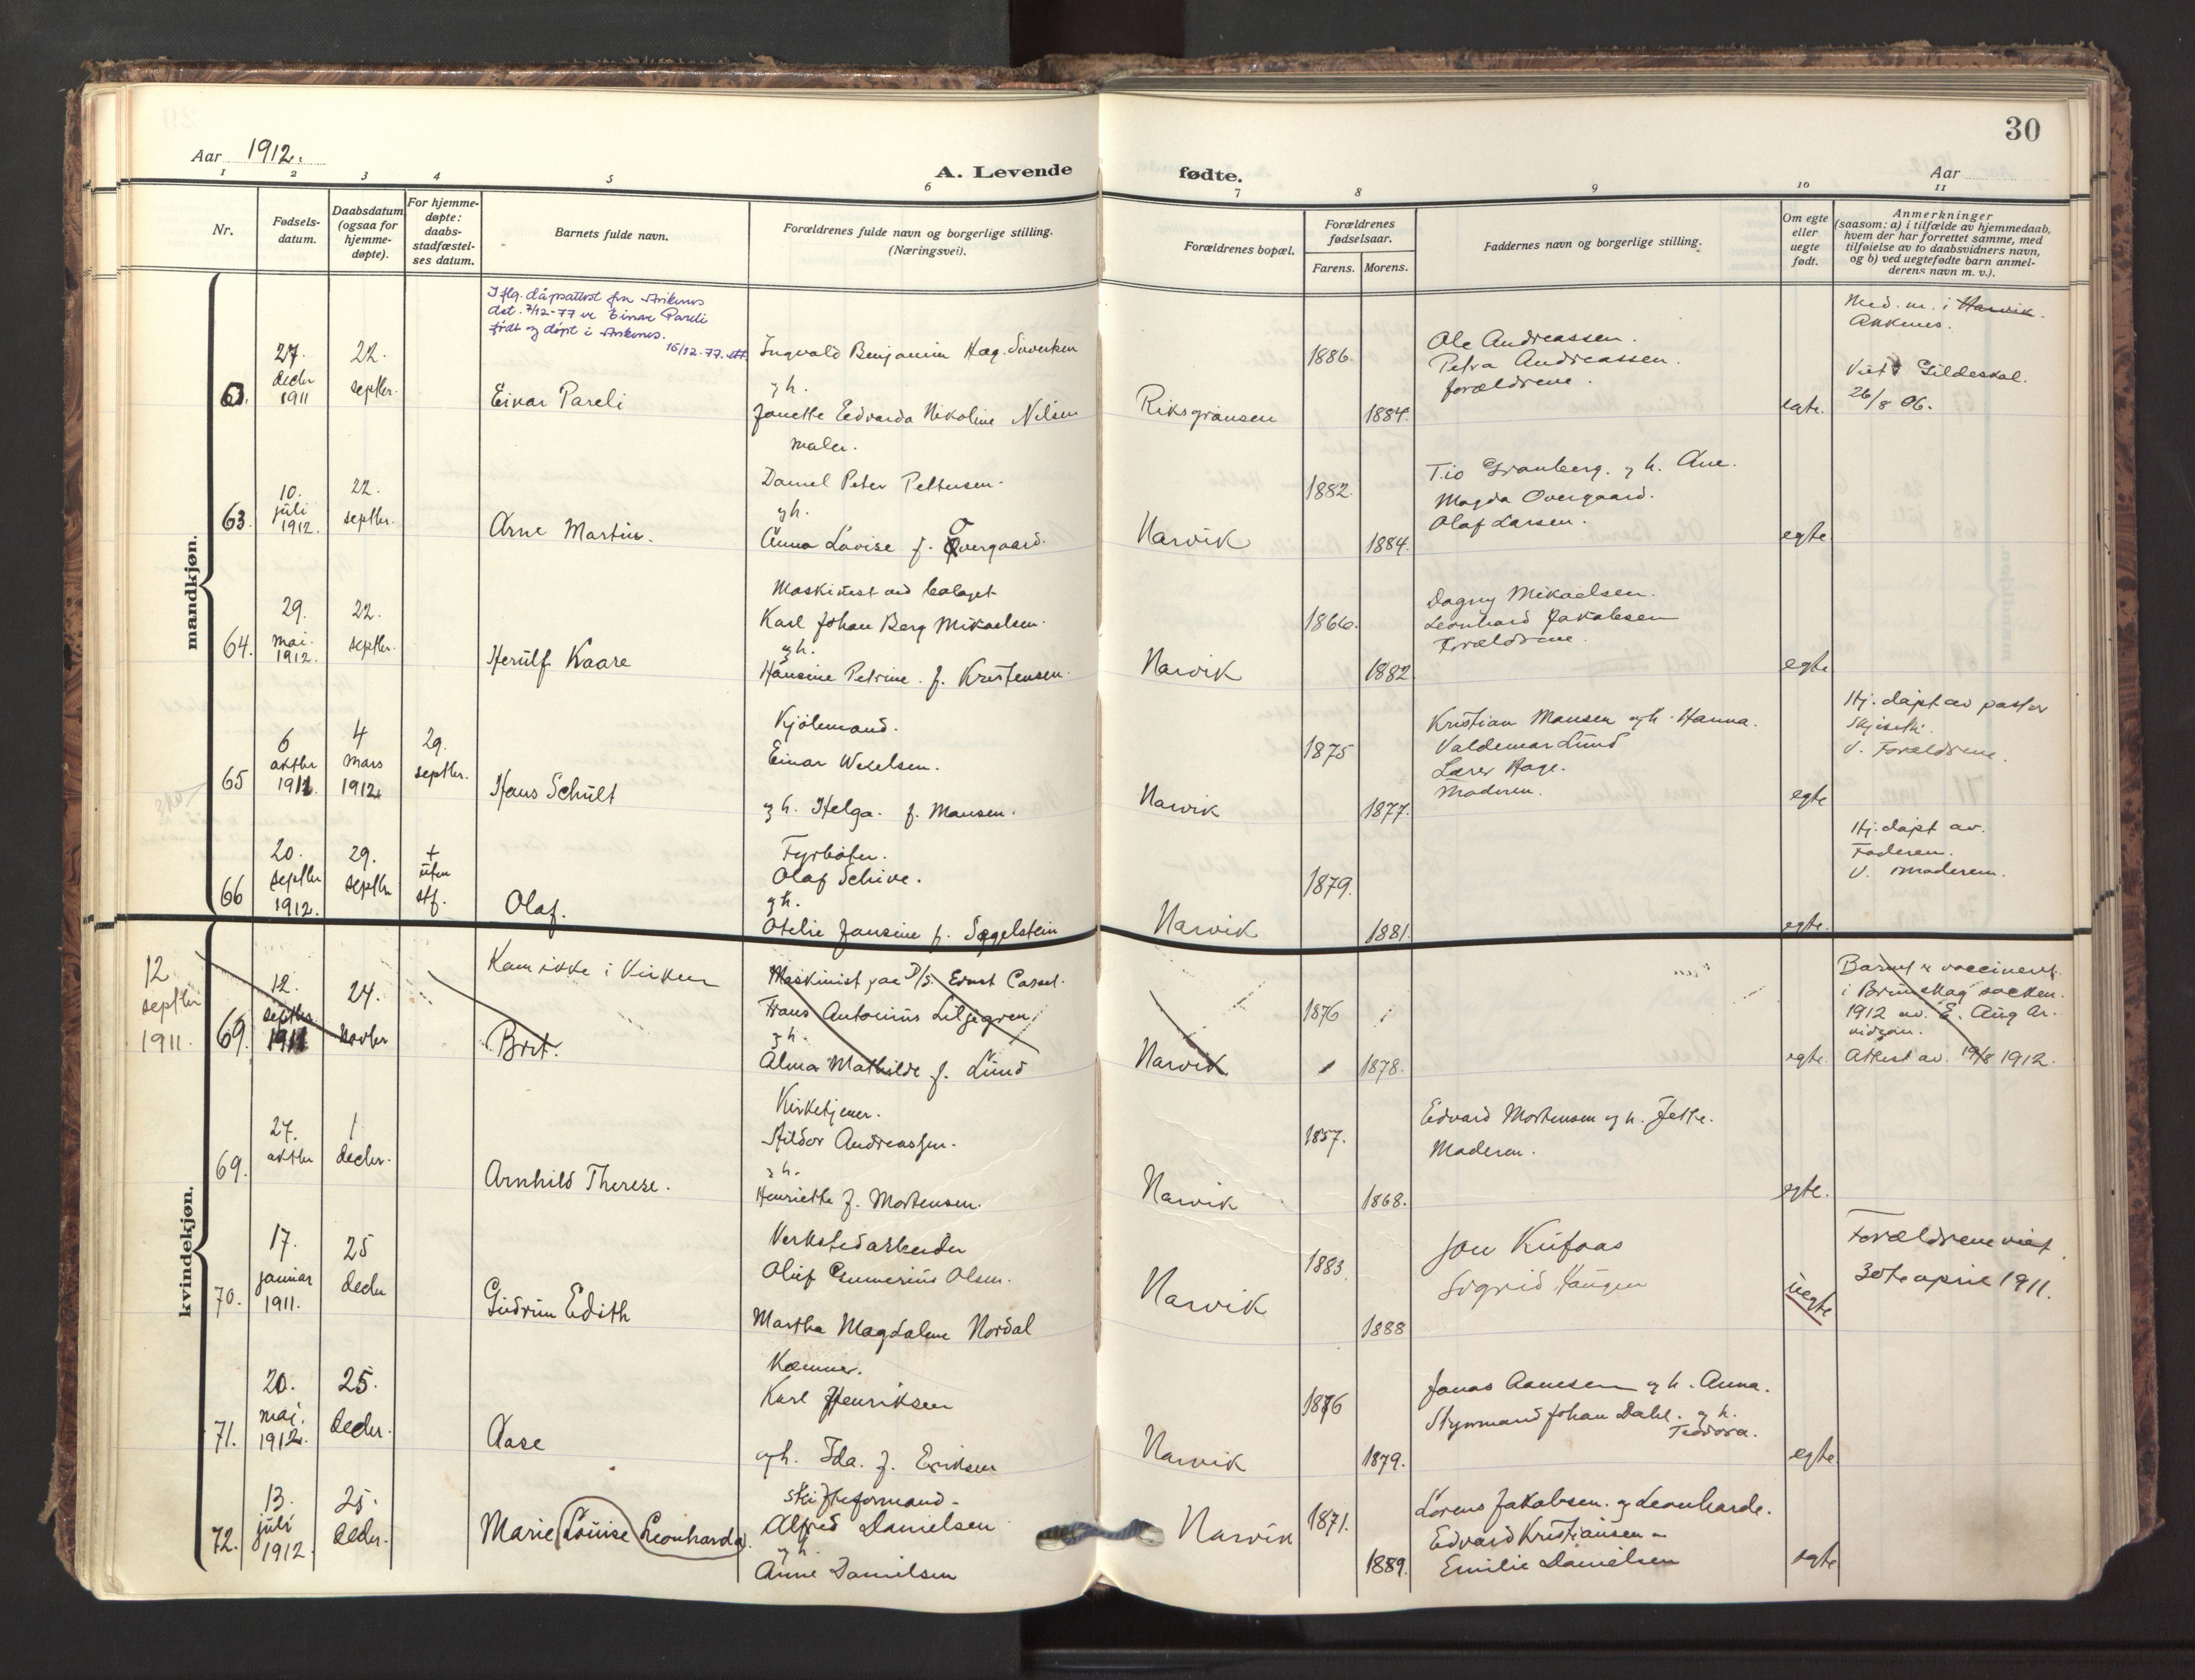 30
Aar 1912.
A. Levende
fødte.
Aar
1 2 3 4 5 6 7 8 9 10 11
Nr.
Fødsels-
datum.
Daabsdatum
(ogsaa for
hjemme-
døpte).
For hjemme-
døpte:
daabs-
stadfæstel-
ses datum.
Barnets fulde navn.
Forældrenes fulde navn og borgerlige stilling.
(Næringsvei).
Forældrenes bopæl.
Forældrenes
fødselsaar.
Farens. Morens.
Faddernes navn og borgerlige stilling.
Om egte
eller
uegte
født.
Anmerkninger
(saasom: a) i tilfælde av hjemmedaab,
hvem der har forrettet samme, med
tilføielse av to daabsvidners navn,
og b) ved uegtefødte barn anmel-
derens navn m. v.).
mandkjøn.
Iflg. dåpsattest fra
dat. 7/12-77 er Einar Pareli
født og døpt i
15/12-77.
27.
decbr
1911
22.
septbr.
Einar Pareli
Ingvald Benjamin Hag.
g h.
Janette Edvarda Nikoline Nilsen
Riksgränsen
1886.
1884.
Ole Andreassen.
Petra Andreassen.
forældrene.
egte.
Med. m. i Harvik.
Ankenes.
Viet i Gildeskal.
26/8 06.
63.
10.
juli
1912.
22.
septbr.
Arne Martin.
maler.
Daniel Peter Pettersen.
g h.
Anna Lovise f. Overgaard.
Narvik
1882.
1884.
Granberg. g h. Ane.
Magda Overgaard.
Olaf Larsen.
egte
64.
29.
mai.
1912.
22.
septbr.
Herulf Kaare
Maskinist ved bolaget
Karl Johan Berg Mikaelsen.
g h.
Hansine Petrine. f. Kristensen.
Narvik
1866.
1882
Dagny Mikaelsen.
Leonhard Jakobsen
Forældrene.
egte
65
6
oktbr
1911.
4
mars
1912.
29.
septbr.
Hans Schült
Kjölemand.
Einar Wexelsen.
g h. Helga. f. Mansen.
Narvik
1875
1877.
Kristian Mansen og h. Hanna.
Valdemar Lund
Lærer Hage.
Moderen.
egte
Hj. døpt av pastor
Skjeseth.
V. Forældrene.
66
20.
septbr
1912.
29.
septbr
+
uten
stf.
Olaf.
Fyrbøter.
Olaf Schive.
g h.
Otelie Jansine f. Søgelstein
Narvik
1879.
1881.
egte.
Hj. døpt av.
Faderen.
V. Moderen.
kvindekjøn.
12
septbr
1911.
69.
12.
septbr
1911
24.
novbr
Kom ikke i Kirken
Brit.
Maskinist paa D/S. Ernst Cassel.
Frans Antonius Liljegren
g h.
Alma Mathilde f. Lund
Narvik
1876
1878.
egte.
Barnet er vaccineret.
i Brunskog socken.
1912 av. E. Aug Ar-
vidson.
Attest av. 19/8 1912.
69.
27.
oktbr
1
decbr.
Arnhild Therese.
Kirketjener.
Hildor Andreassen.
g h.
Henriette f. Mortensen.
Narvik
1857.
1868.
Edvard Mortensen og h. Jette.
Moderen.
egte.
70.
17.
januar
1911.
25
decbr
Gudrun Edith
Verkstedarbeider
Oluf Olsen.
Martha Magdalene Nordal
Narvik
1883.
1888
Jon Kufaas
Sigrid Haugen
uegte
Forældrene viet
30te april 1911.
71.
20.
mai.
1912.
25.
decbr.
Aase
Kæmner.
Karl Henriksen
og h. Ida. f. Eriksen
Narvik
1876
1879.
Jonas Aanesen og h. Anna.
Styrmand Johan Dahl. og h.
Teodora.
egte
72.
13.
juli
1912.
25.
decbr.
Marie Louise Leonharda.
Skifteformand.
Alfred Danielsen
g h.
Anne Danielsen
Narvik
1871.
1889.
Lorens Jakobsen. og Leonharde.
Edvard Kristiansen
Emilie Danielsen
egte